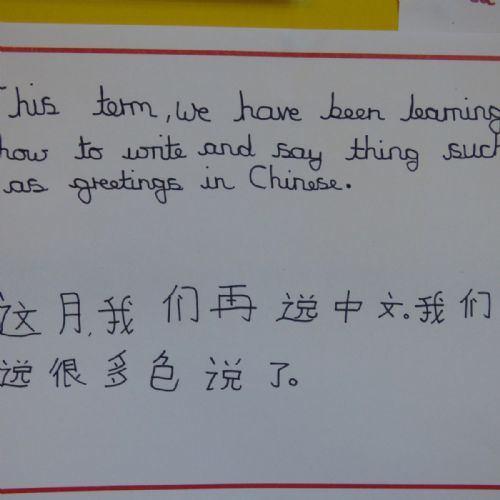 This term, we have been learning
how to write and say thing such
as greetings in Chinese.
这月,我们再说中文。我们
说很多色说了。